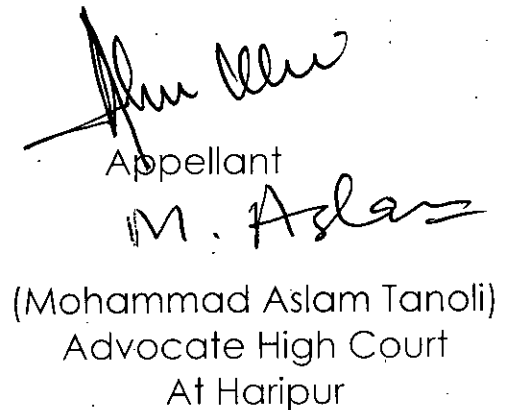 Appellant
M. Aslam
(Mohammad Aslam Tanoli)
Advocate High Court
At Haripur